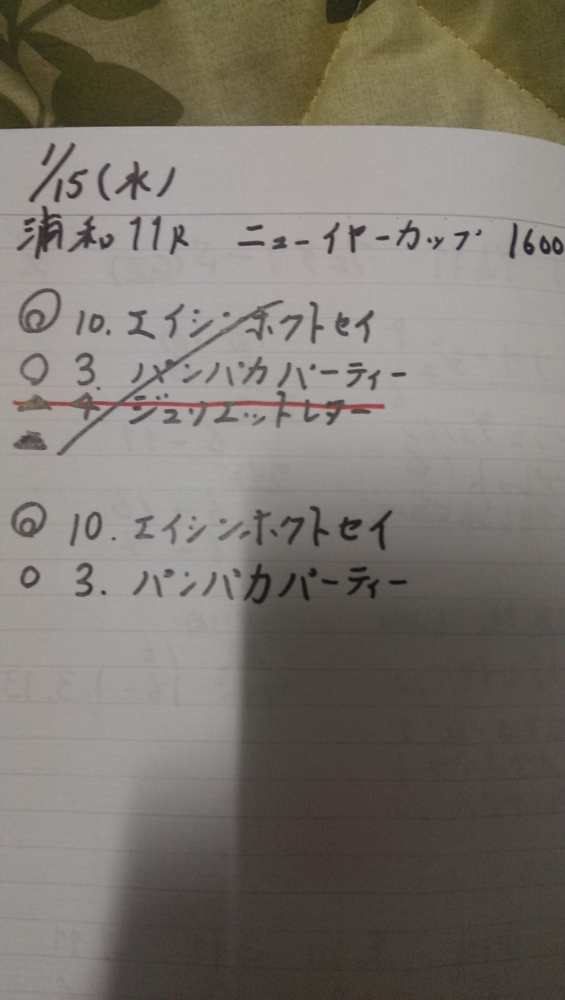 1/15(水)
浦和11R ニューイヤーカップ 1600
◎ 10. エイシンホクトセイ
○ 3. パンパカパーティー
▲ 4 ジュリエットレター
▲
◎ 10. エイシンホクトセイ
○ 3. パンパカパーティー